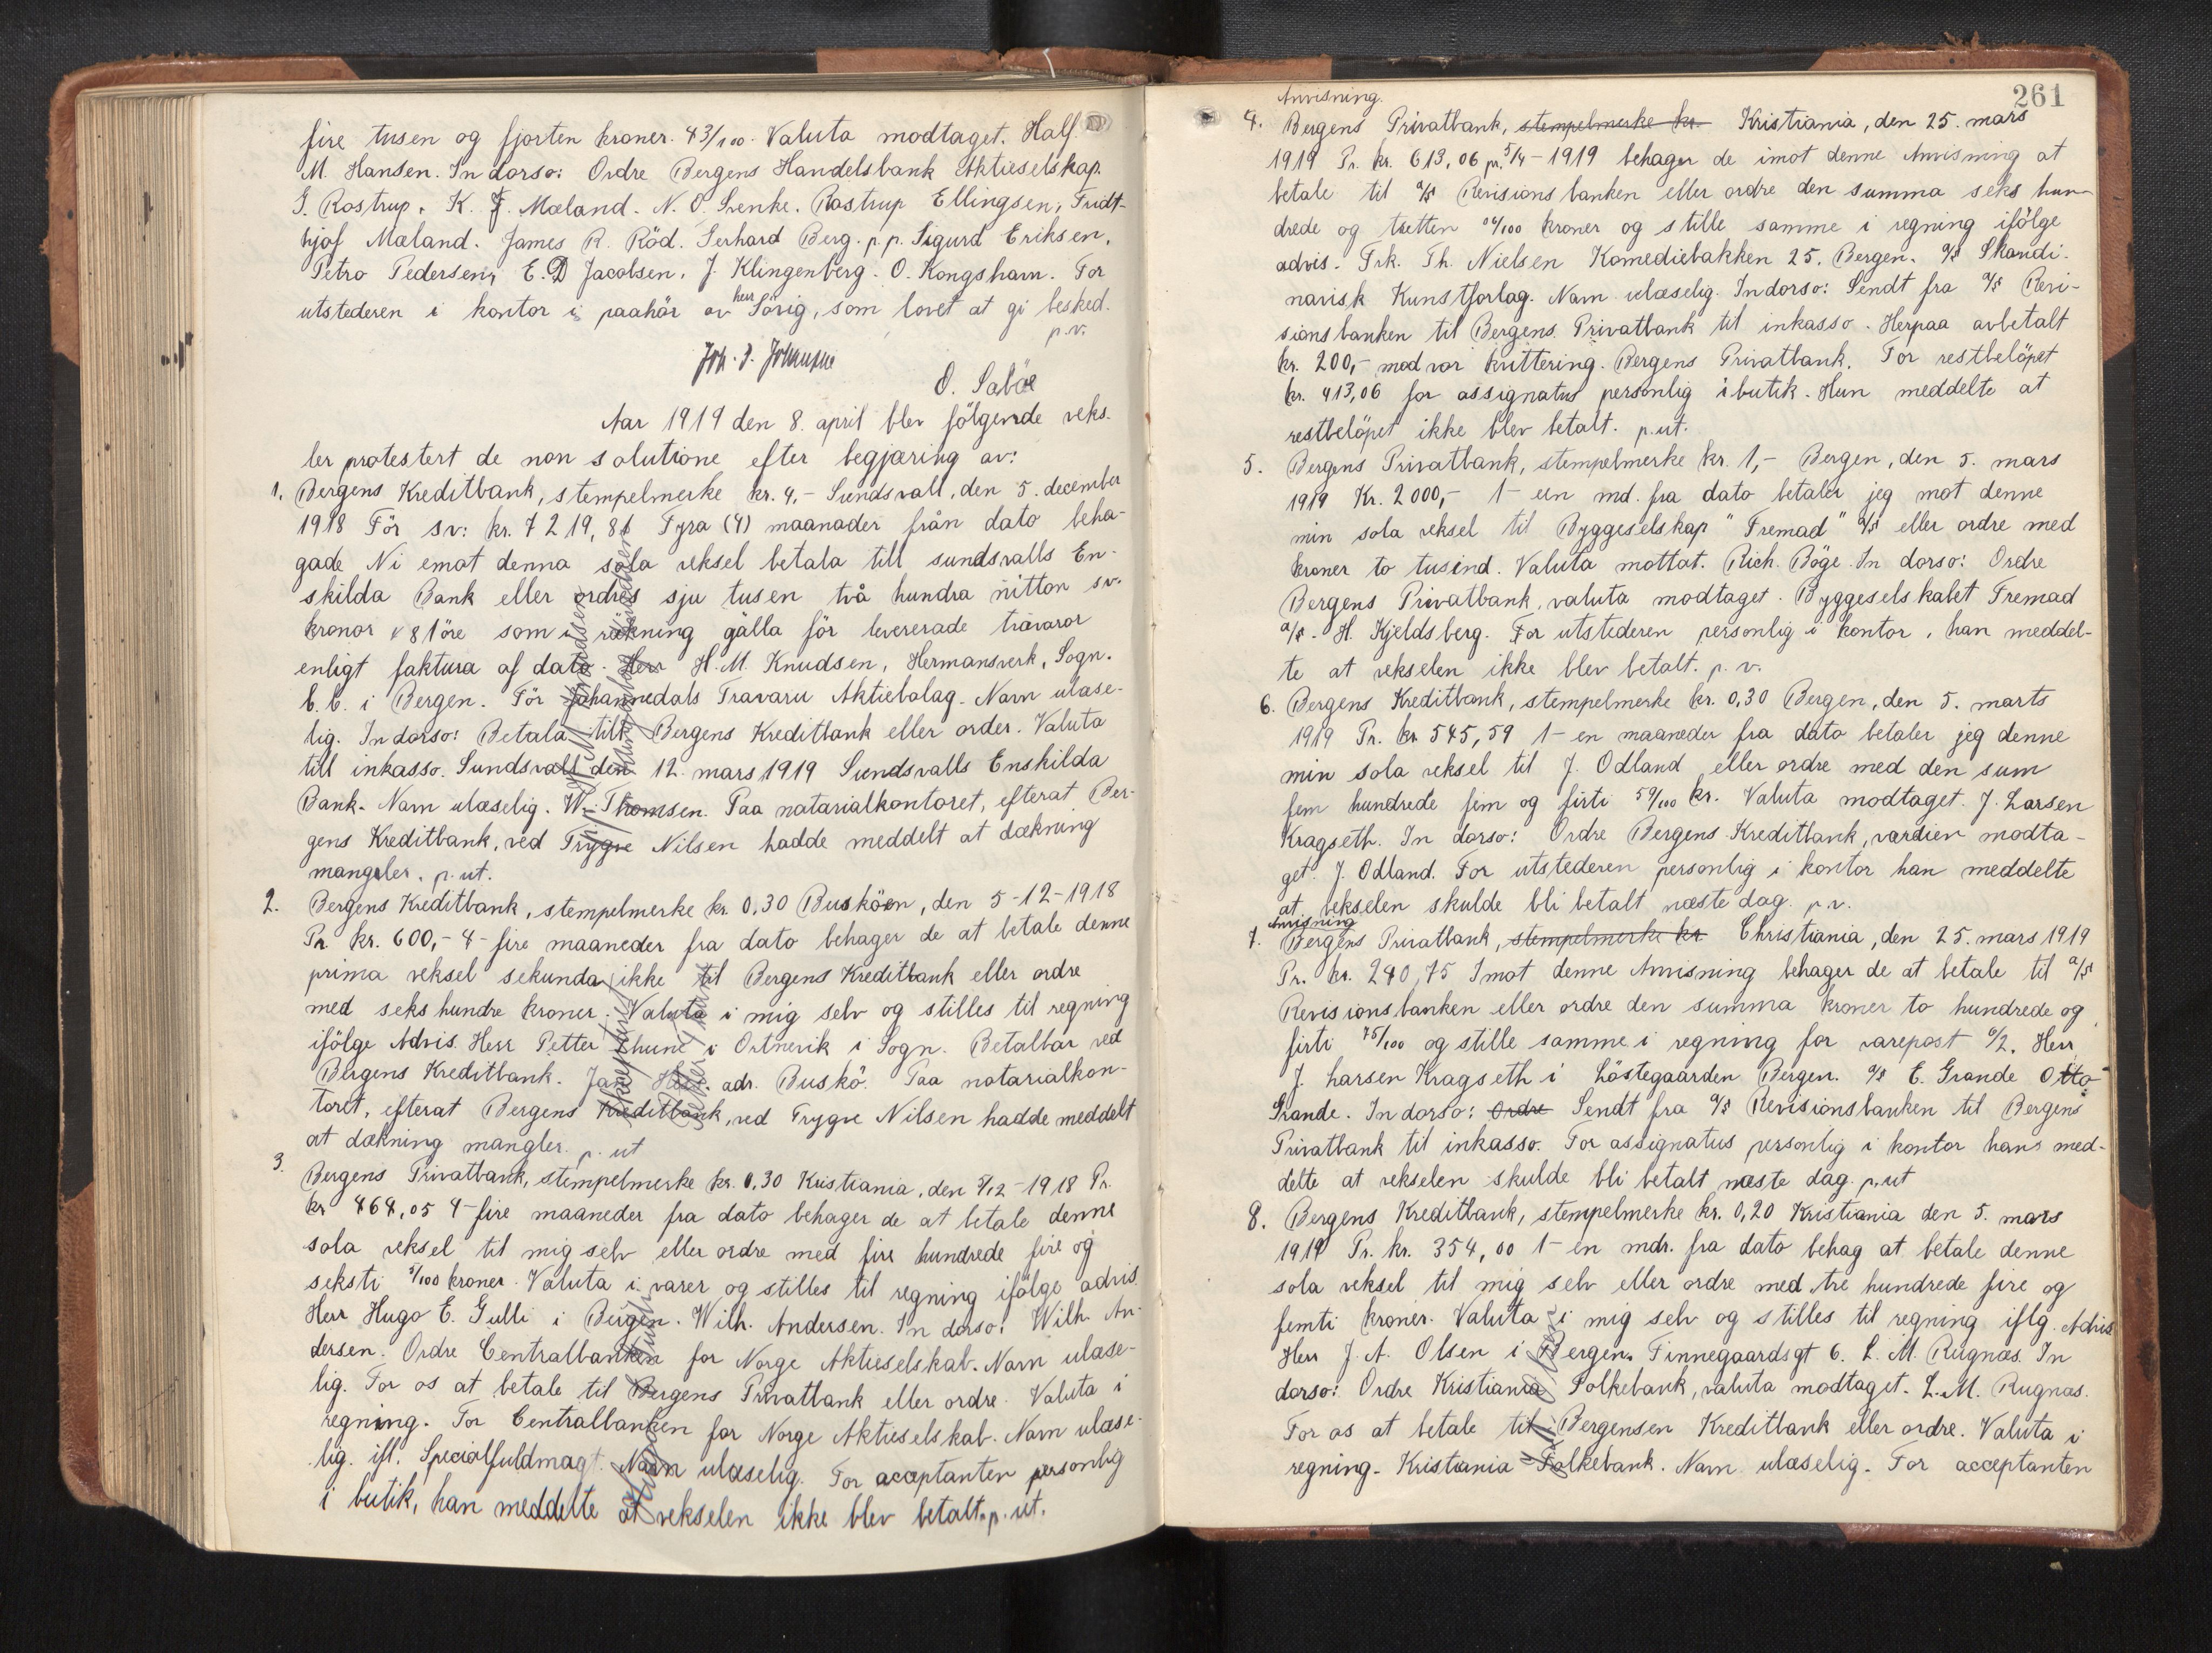 fire tusen og fjorten kroner. 43/100. Valuta modtaget. Half.
M. Hansen. In dorso: Ordre Bergens Handelsbank Aktieselskap.
G. Rostrup. K. F. Mæland. N. O. Svenke. Rastrup Ellingsen, Fridt-
hjof Mæland. James R. Röd. Gerhard Berg. p.p. Sigurd Eriksen.
Petro Pedersen, E. D Jacobsen. J. Klingenberg. O. Kongshavn. For
utstederen i kontor i paahör av herr Sörig, som lovet at gi besked.
p.v.
Joh. J. Johnsen
O. Saböe
Aar 1919 den 8. april blev fölgende veks-
ler protestert de non solutione efter begjæring av:
1. Bergens Kreditbank, stempelmerke kr. 4,- Sundsvall, den 5. december
1918 För sv: kr. 7219,81 Fyra (4) maanader från dato beha-
gade Ni emot denna sola veksel betala till sundsvalls En-
skilda Bank eller ordres sju tusen två hundra nitton sv.
kronor & 81 öre som i räkning gälla för levererade trävaror
enligt faktura af dato. Herr H. M. Knudsen, Hermansverk, Sogn.
b.b. i Bergen. För Johannedals Travaru Aktiebolag. Navn ulæse-
lig. In dorso: Betala till Bergens Kreditbank eller order. Valuta
till inkasso. Sundsvall den 12. mars 1919 Sundsvalls Enskilda
Bank. Navn ulæselig. W. Thomsen. Paa notarialkontoret, efterat Ber-
gens Kreditbank, ved Trygve Nilsen hadde meddelt at dækning
mangler. p. ut.
2. Bergens Kreditbank, stempelmerke kr. 0,30 Busköen, den 5-12-1918
Pr kr. 600,- 4- fire maaneder fra dato behager de at betale denne
prima veksel sekunda ikke til Bergens Kreditbank eller ordre
med seks hundre kroner. Valuta i mig selv og stilles til regning
ifölge Advis. Herr Petter Thune i Ortnevik i Sogn. Betalbar ved
Bergens Kreditbank. Jan adr. Buskö. Paa notarialkon-
toret, efterat Bergens Kreditbank, ved Trygve Nilsen hadde meddelt
at dækning mangler. p. ut
3. Bergens Privatbank, stempelmerke kr. 0,30 Kristiania, den 5/12-1918 Pr.
kr 464,05 4- fire maaneder fra dato behager de at betale denne
sola veksel til mig selv eller ordre med fire hundrede fire og
seksti 5/100 kroner. Valuta i varer og stilles til regning ifölge advis.
Herr Hugo E. Gulli i Bergen. Wilh. Andersen. In dorso: Wilh. An-
dersen. Ordre Centralbanken for Norge Aktieselskab. Navn ulæse-
lig. For os at betale til Bergens Privatbank eller ordre. Valuta i
regning. For Centralbanken for Norge Aktieselskab. Navn ulæse-
lig. ifl. Specialfuldmagt. Navn ulæselig. For acceptanten personlig
i butik, han meddelte at vekselen ikke blev betalt. p. ut.
261
Anvisning.
4. Bergens Privatbank, stempelmerke kr. Kristiania, den 25. mars
1919 Pr. kr. 613,06 pr. 5/4-1919 behager de imot denne Anvisning at
betale til A/S Revisionsbanken eller ordre den summa seks hun-
drede og tretten 06/100 kroner og stille samme i regning ifölge
advis. Frk. Th. Nielsen Komediebakken 25. Bergen. A/S Skandi-
navisk Kunstforlag. Navn ulæselig. Indorso: Sendt fra A/S Revi-
sionsbanken til Bergens Privatbank til inkasso. Herpaa avbetalt
kr. 200,- mod vor kvittering. Bergens Privatbank. For restbelöpet
kr. 413,06 for assignatus personlig i butik. Hun meddelte at
restbelöpet ikke blev betalt. p. ut.
5. Bergens Privatbank, stempelmerke kr. 1,- Bergen, den 5. mars
1919 Kr. 2000,- 1- een md. fra dato betaler jeg mot denne
min sola veksel til Byggeselskap "Fremad" A/S eller ordre med
kroner to tusind. Valuta mottat. Rich. Böge. In dorso: Ordre
Bergens Privatbank, valuta modtaget. Byggeselskabet Fremad
A/S. H. Kjeldsberg. For utstederen personlig i kontor, han meddel-
te at vekselen ikke blev betalt. p. v.
6. Bergens Kreditbank, stempelmerke kr. 0,30 Bergen, den 5. marts
1919 Pr. kr 545,59 1- en maaneder fra dato betaler jeg denne
min sola veksel til J. Odland eller ordre med den sum
fem hundrede fem og firti 59/100 kr. Valuta modtaget. J. Larsen
Kragseth. In dorso: Ordre Bergens Kreditbank, værdien modta-
get. J. Odland. For utstederen personlig i kontor han meddelte
at vekselen skulde bli betalt næste dag. p. v.
Anvisning
7. Bergens Privatbank, stempelmerke kr Christiania, den 25. mars 1919
Pr. kr. 240,75 Imot denne Anvisning behager de at betale til A/S
Revisionsbanken eller ordre den summa kroner to hundrede og
firti 75/100 og stille samme i regning for varepost 6/2. Herr
J. Larsen Kragseth i Löstegaarden Bergen. A/S E. Grande Otto
Grande. In dorso: Ordre Sendt fra A/S Revisionsbanken til Bergens
Privatbank til inkasso. For assignatus personlig i kontor hans med-
delte at vekselen skulde bli betalt næste dag. p. ut
8. Bergens Kreditbank, stempelmerke kr. 0,20 Kristiania den 5. mars
1919 Pr. kr. 354,00 1- en mdr. fra dato behag at betale denne
sola veksel til mig selv eller ordre med tre hundrede fire og
femti kroner. Valuta i mig selv og stilles til regning iflg. Advis
Herr J. A. Olsen i Bergen. Finnegaardsgt 6. L. M. Rugnæs. In
dorso: Ordre Kristiania Folkebank, valuta modtaget. L. M. Rugnæs.
For os at betale til Bergensen Kreditbank eller ordre. Valuta i
regning. Kristiania Folkebank. Navn ulæselig. For acceptanten